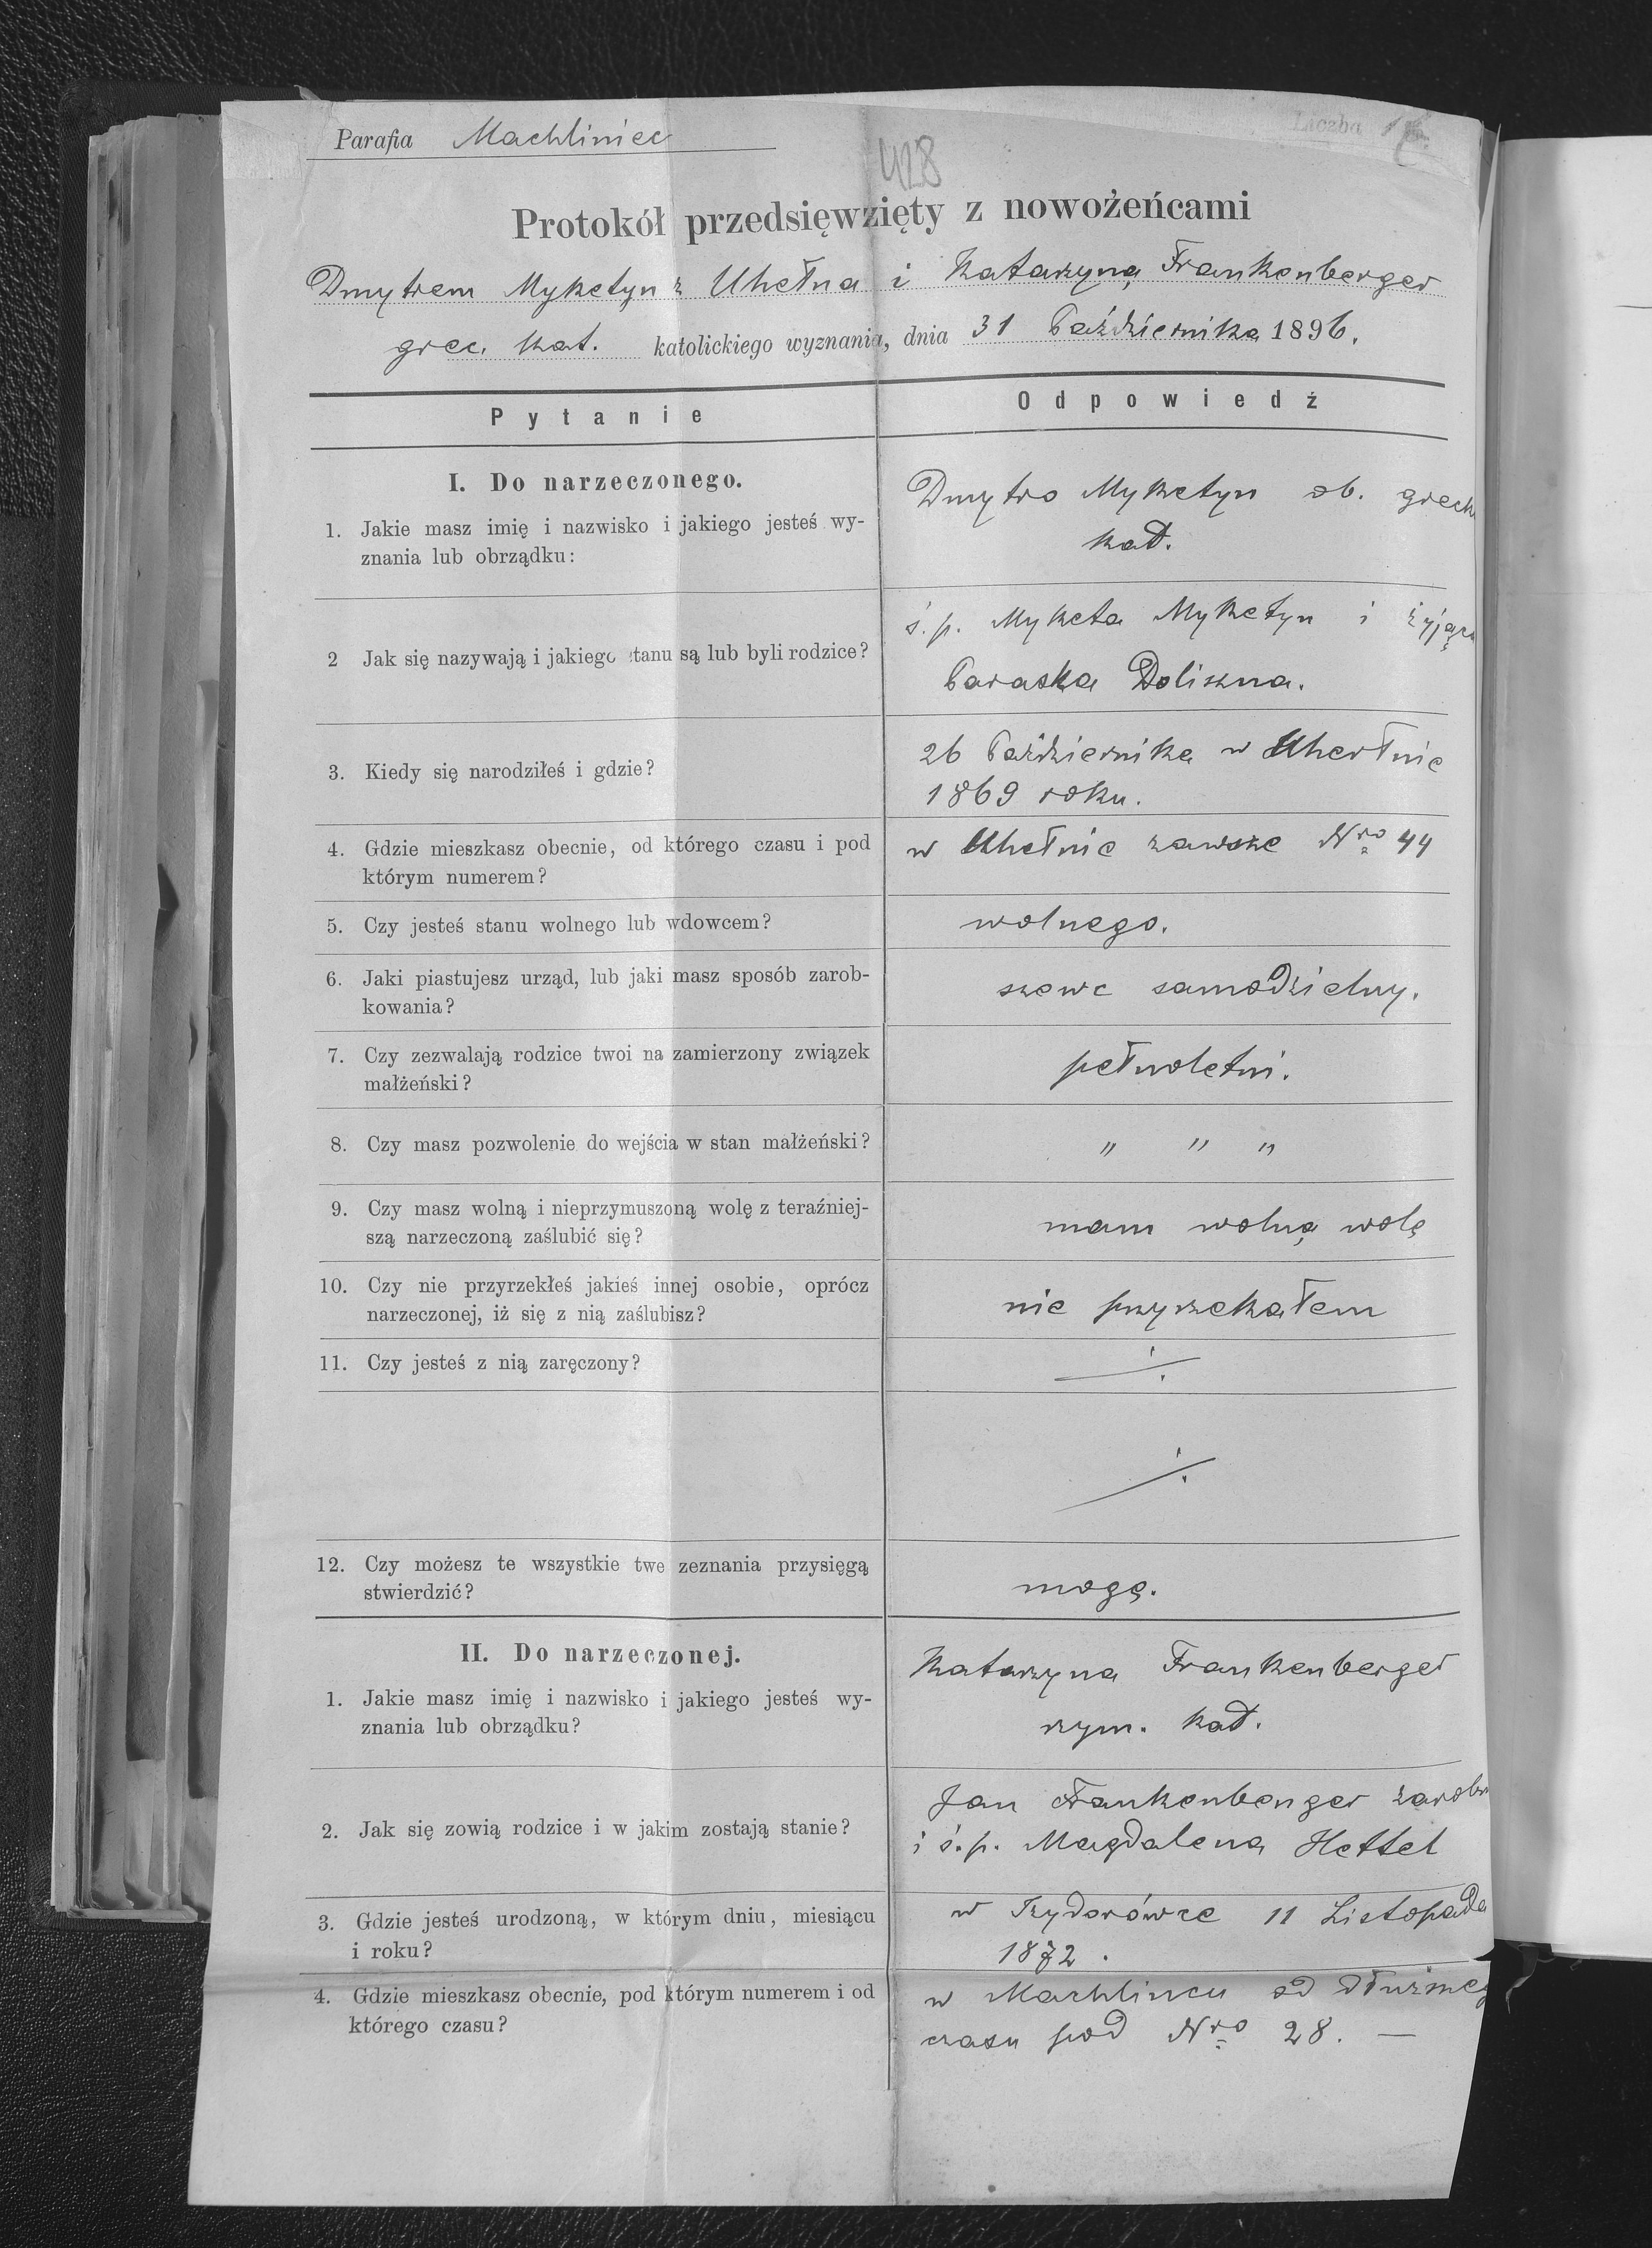 Parafia Machliniec
Liczba
428
Protokół przedsięwzięty z nowożeńcami
Dmytrem Myketyn z Uhełna i Katarzyną Frankenberger
grec. kat. katolickiego wyznania, dnia 31 Października 1896.
Pytanie
Odpowiedź
I. Do narzeczonego.
1. Jakie masz imię i nazwisko i jakiego jesteś wy-
znania lub obrządku:
Dmytro Myketyn ob. greck
kat.
2 Jak się nazywają i jakiego stanu są lub byli rodzice?
ś.p. Myketa Myketyn i żyjąca
Paraska Doliszna.
3. Kiedy się narodziłeś i gdzie?
26 Października w Uhertnie
1869 roku.
4. Gdzie mieszkasz obecnie, od którego czasu i pod
którym numerem?
w Uhełnie zawsze Nro 44
5. Czy jesteś stanu wolnego lub wdowcem?
wolnego.
6. Jaki piastujesz urząd, lub jaki masz sposób zarob-
kowania?
szewc samodzielny.
7. Czy zezwalają rodzice twoi na zamierzony związek
małżeński?
pełnoletni.
8. Czy masz pozwolenie do wejścia w stan małżeński?
" " "
9. Czy masz wolną i nieprzymuszoną wolę z teraźniej-
szą narzeczoną zaślubić się?
mam wolną wolę
10. Czy nie przyrzekłeś jakieś innej osobie, oprócz
narzeczonej, iż się z nią zaślubisz?
nie przyrzekałem
11. Czy jesteś z nią zaręczony?
./.
./.
12. Czy możesz te wszystkie twe zeznania przysięgą
stwierdzić?
mogę.
II. Do narzeczonej.
1. Jakie masz imię i nazwisko i jakiego jesteś wy-
znania lub obrządku?
Katarzyna Frankenberger
rzym. kat.
2. Jak się zowią rodzice i w jakim zostają stanie?
Jan Frankenberger zarobn
i ś.p. Magdalena Hettel
3. Gdzie jesteś urodzoną, w którym dniu, miesiącu
i roku?
w Izydorówce 11 Listopada
1872.
4. Gdzie mieszkasz obecnie, pod którym numerem i od
którego czasu?
w Machlincu od dłuższeg
czasu pod Nro 28. —